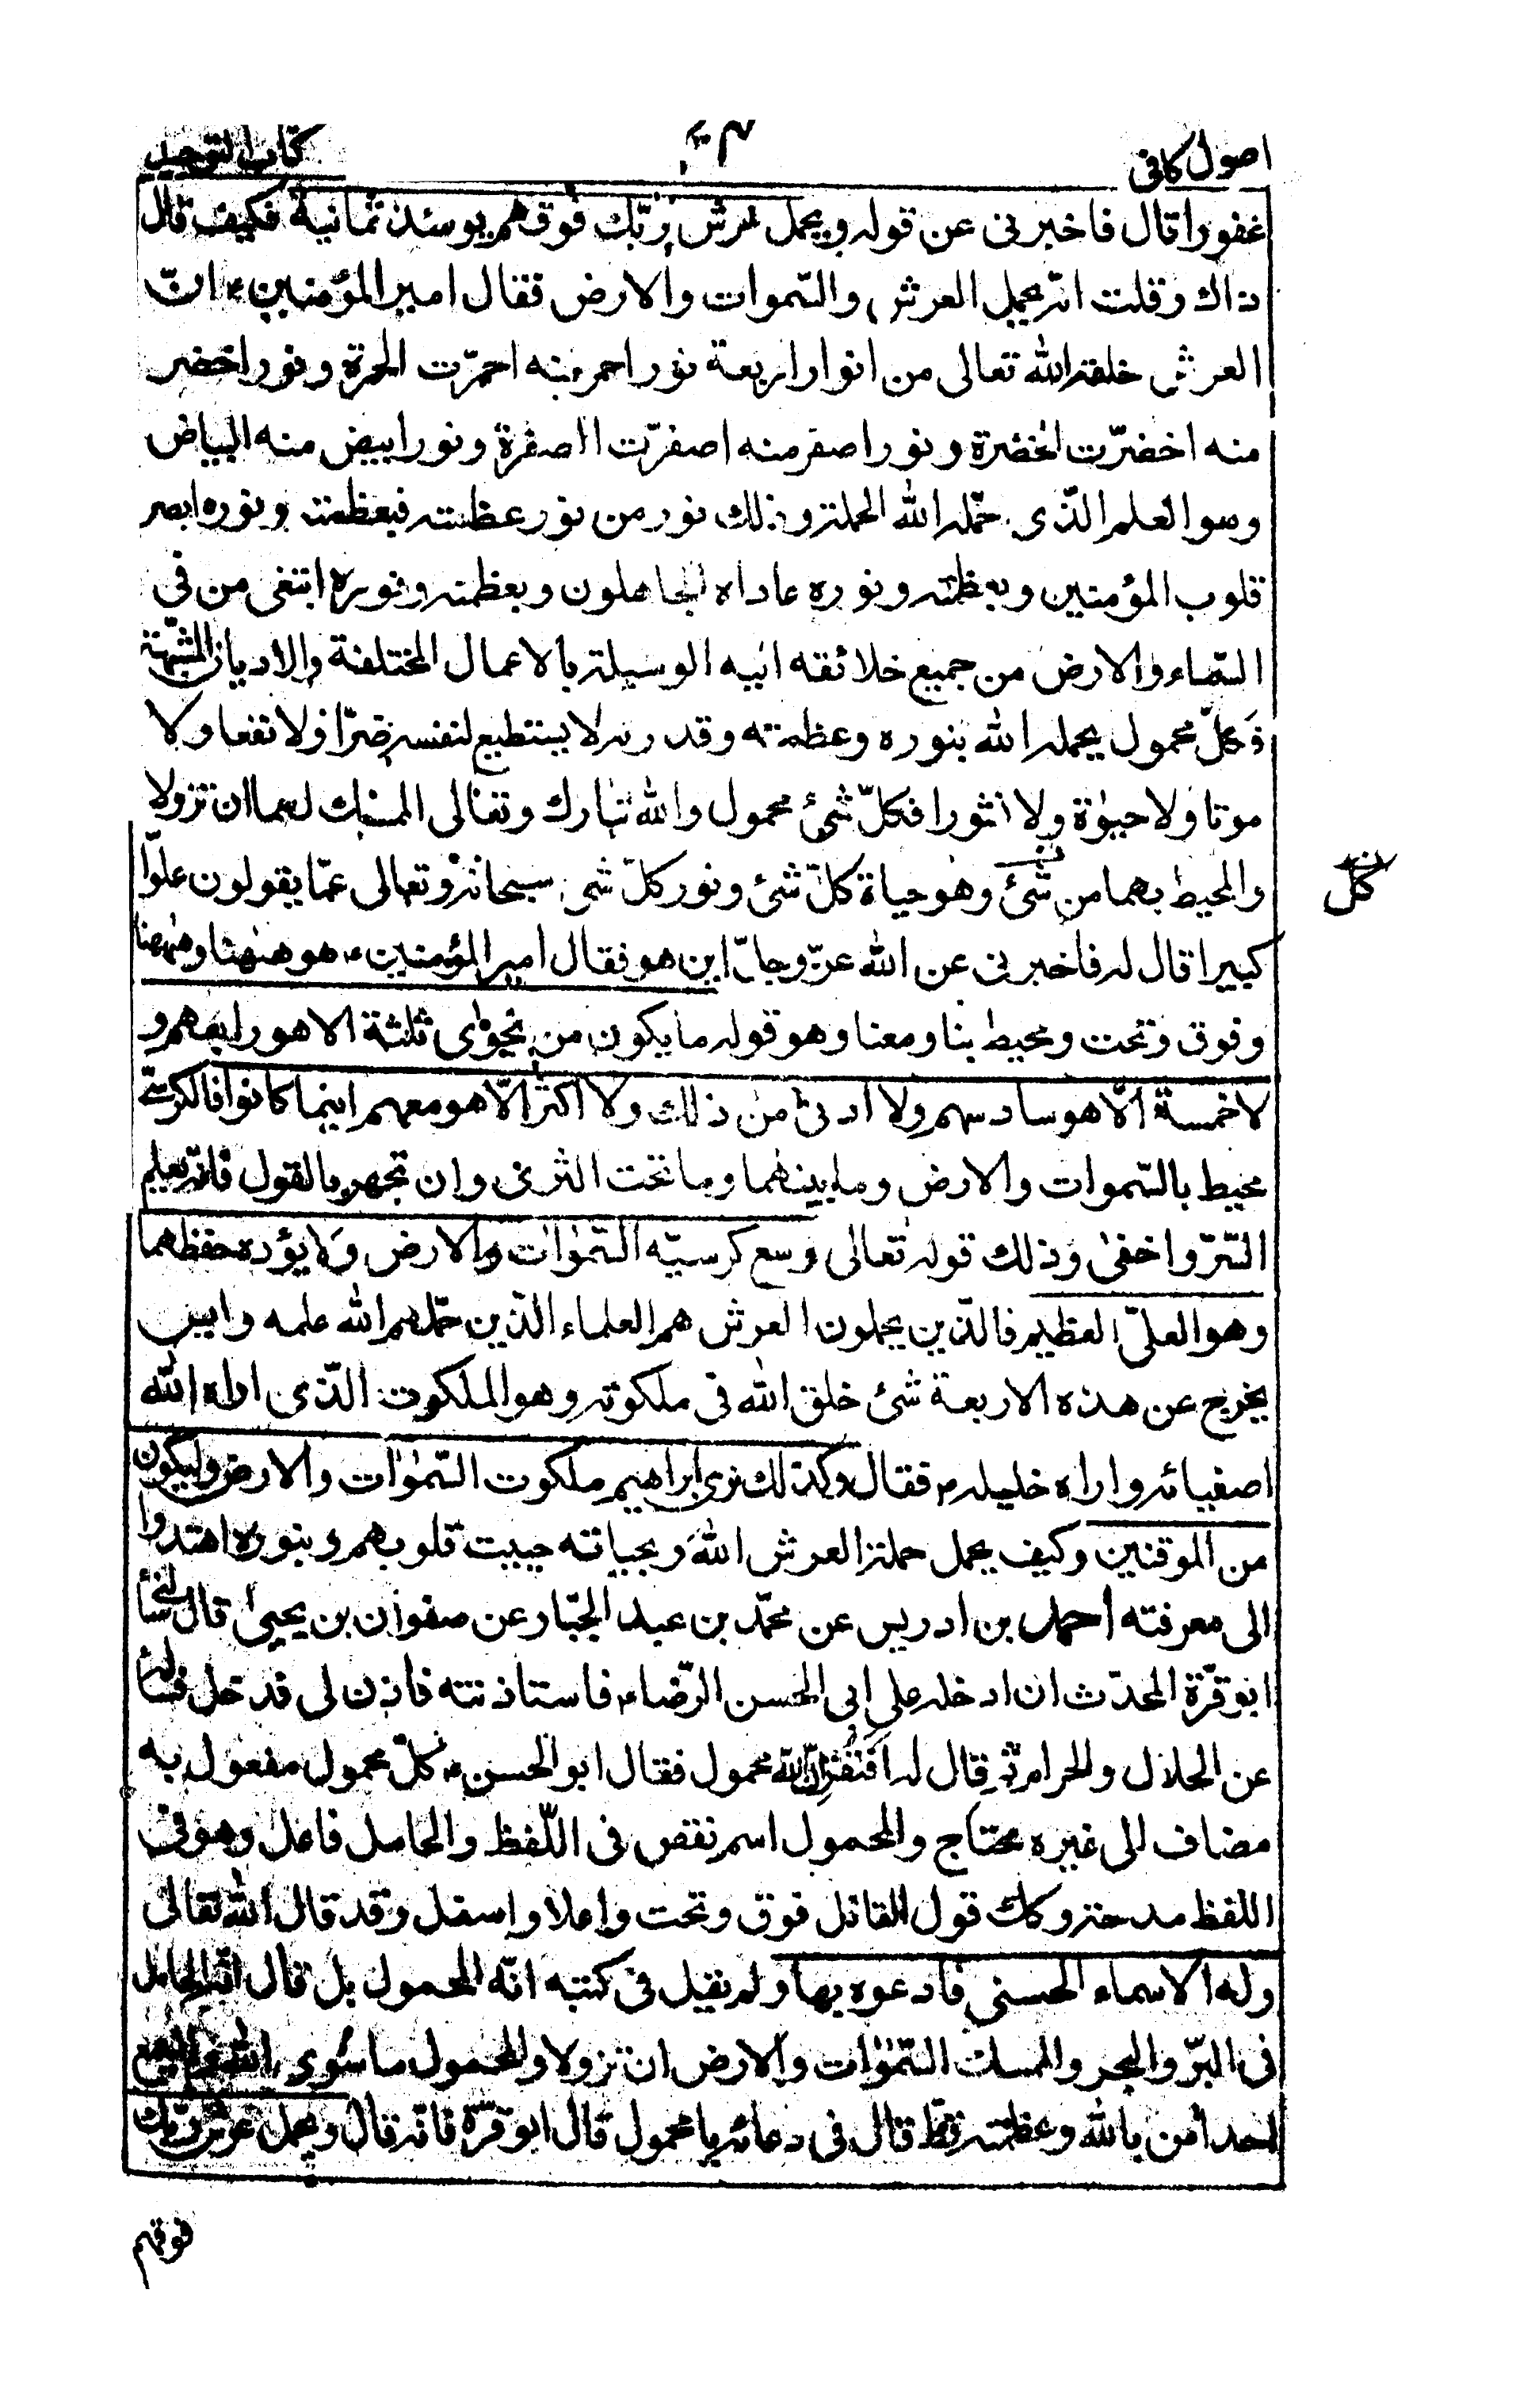 اصول كافى
كتاب التوحيد
غفورا قال فاخبرنى عن قوله ويحمل عرش ربّك فوقهم يومئذ ثمانية فكيف قال
ذاك وقلت انّه يحمل العرش والسّموات والارض فقال امير المؤمنين ء انّ
العرش خلقه الله تعالى من انوار اربعة نور احمر منه احمرّت الحمرة ونور اخضر
منه اخضرّت الخضرة ونور اصفر منه اصفرّت الصفرة ونور ابيض منه البياض
وهو العلم الّذى حمّله الله الحملة وذلك نور من نور عظمته فبعظمته ونوره ابصر
قلوب المؤمنين وبعظمته ونوره عاداه الجاهلون وبعظمته ونوره ابتغى من فى
السّماء والارض من جميع خلائقه اليه الوسيلة بالاعمال المختلفة والاديان المشبّهة
فكلّ محمول يحمله الله بنوره وعظمته وقدرته لا يستطيع لنفسه ضرّا ولا نفعا ولا
موتا ولا حيوٰة ولا نشورا فكلّ شئ محمول والله تبارك وتعالى الممسك لهما ان تزولا
والمحيط بهما من شئ وهو حياة كلّ شئ ونور كلّ شئ سبحانه وتعالى عمّا يقولون علوّا
كلّ
كبيرا قال له فاخبرنى عن الله عزّ وجلّ اين هو فقال امير المؤمنين ء هو هٰهنا وهٰهنا
وفوق وتحت ومحيط بنا ومعنا وهو قوله ما يكون من نجوٰى ثلٰثة الا هو رابعهم و
لا خمسة الّا هو سادسهم ولا ادنىٰ من ذلك ولا اكثر الّا هو معهم اينما كانوا فالكرسىّ
محيط بالسّموات والارض وما بينهما وما تحت الثرى وان تجهر بالقول فانّه يعلم
السّرّ واخفىٰ وذلك قوله تعالى وسع كرسيّه السّمٰوٰات والارض ولا يؤده حفظهما
وهو العلىّ العظيم فالّذين يحملون العرش هم العلماء الّذين حمّلهم الله علمه وليس
يخرج عن هذه الاربعة شئ خلق الله فى ملكوته وهو الملكوت الّذى اراه الله
اصفيائه واراه خليله ء فقال وكذلك نرى ابراهيم ملكوت السّمٰوٰات والارض وليكون
من الموقنين وكيف يحمل حملة العرش الله وبحياته حييت قلوبهم وبنوره اهتدوا
الى معرفته احمد بن ادريس عن محمّد بن عبد الجبّار عن صفوان بن يحيىٰ قال سألنى
ابو قرّة المحدّث ان ادخله على ابى الحسن الرّضاء فاستاذنته فاذن لى فدخل فسأله
عن الحلال والحرام ثمّ قال له افتقرّ انّ الله محمول فقال ابو الحسن ء كلّ محمول مفعول به
مضاف الى غيره محتاج والمحمول اسم نقص فى اللّفظ والحامل فاعل وهو فى
اللفظ مدحة وكك قول القائل فوق وتحت واعلا واسفل وقد قال الله تعالى
وله الاسماء الحسنى فادعوه بها ولم يقل فى كتبه انّه المحمول بل قال انّه الحامل
فى البرّ والبحر والممسك السّمٰوٰات والارض ان تزولا والمحمول ما سوى الله ولم يسمع
احد أمن بالله وعظمته قطّ قال فى دعائه يا محمول قال ابو قرّة فانّه قال ويحمل عرش ربّك
فوقهم